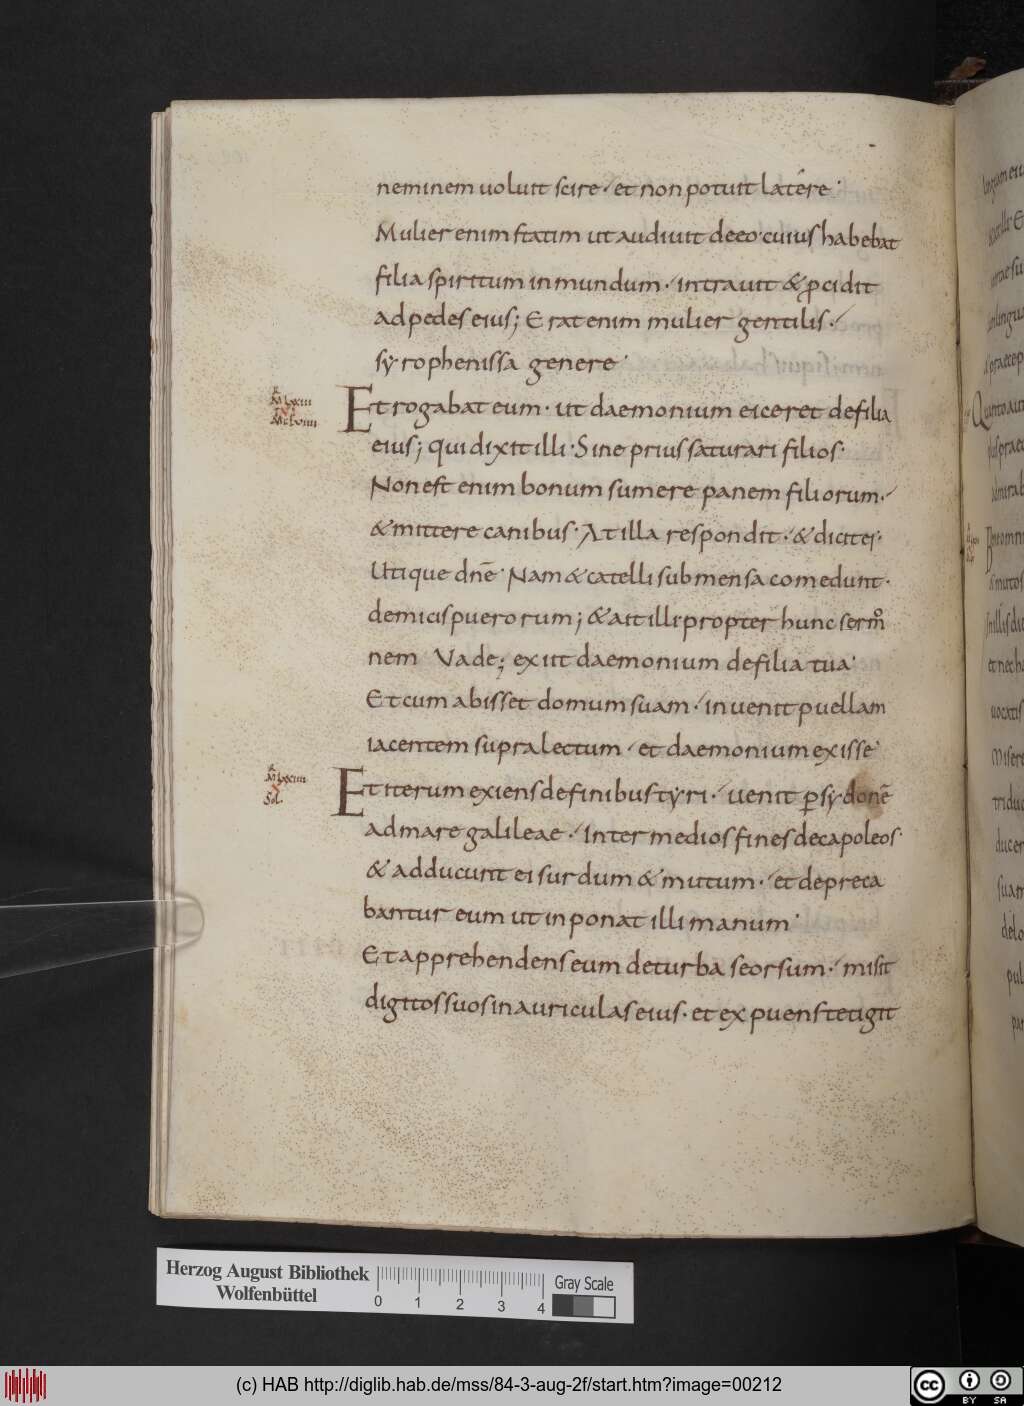 neminem uoluit scire · et non potuit latere ·
Mulier enim statim ut audiuit de eo · cuius habebat
filia spiritum inmundum · intrauit & pcidit
ad pedes eius ; Erat enim mulier gentilis ·
syrophenissa genere ·
Et rogabat eum · ut daemonium eiceret de filia
eius ; qui dixit illi · Sine prius saturari filios ·
Non est enim bonum sumere panem filiorum ·
& mittere canibus · At illa respondit · & dicit ei ·
Utique dnē · Nam & catelli sub mensa comedunt ·
de micis puerorum ; & ait illi propter hunc sermo
nem Vade ; exiit daemonium de filia tua ·
Et cum abisset domum suam · inuenit puellam
iacentem supra lectum · et daemonium exisse ·
Et iterum exiens de finibus tyri · uenit p sydonē
ad mare galileae · Inter medios fines decapoleos ·
& adducunt ei surdum & mutum · et depreca
bantur eum ut inponat illi manum ·
Et apprehendens eum de turba seorsum · misit
digitos suos in auriculas eius · et expuens tetigit
Herzog August Bibliothek
Wolfenbüttel
0 1 2 3 4
Gray Scale
(c) HAB http://diglib.hab.de/mss/84-3-aug-2f/start.htm?image=00212
cc BY SA